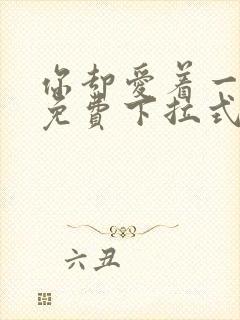 你却爱着一
免费下拉式
六丑